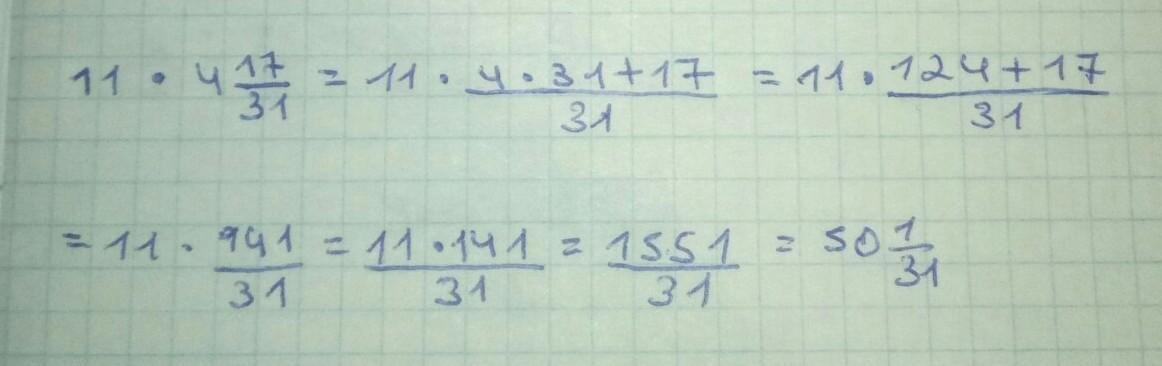 11 · 4 17/31 = 11 · (4 · 31 + 17)/31 = 11 · (124 + 17)/31
= 11 · 141/31 = (11 · 141)/31 = 1551/31 = 50 1/31